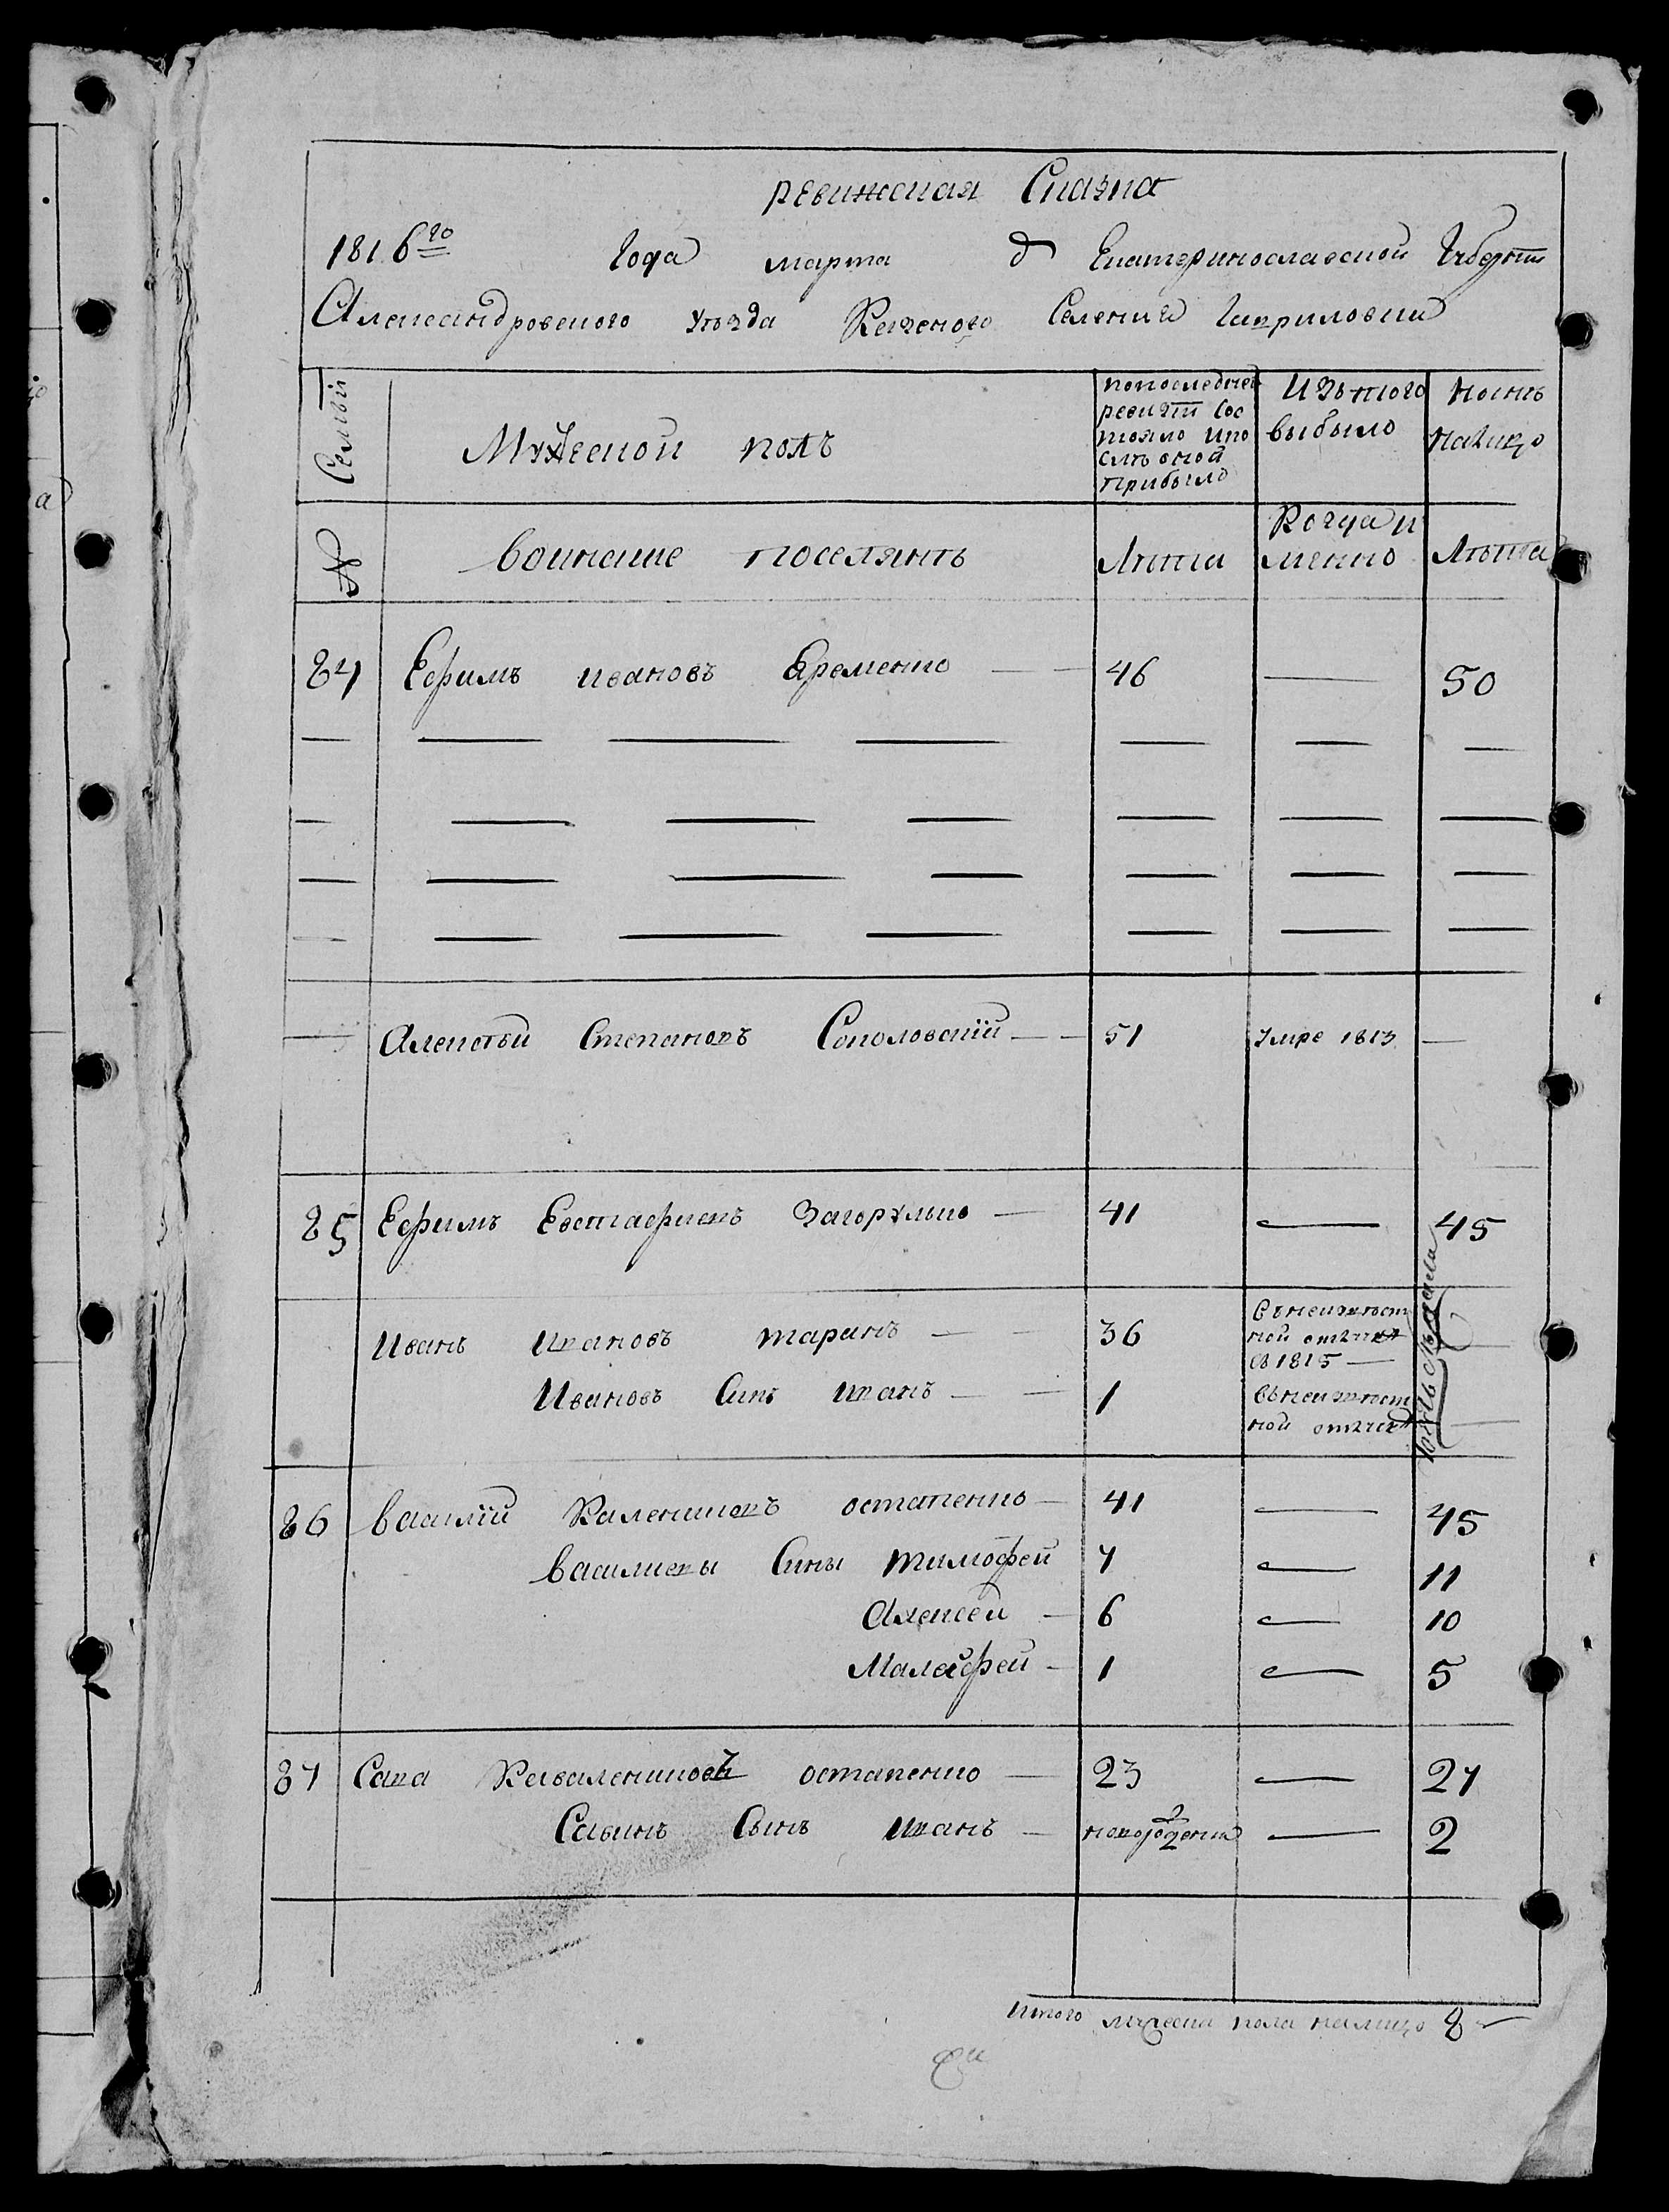 ревижская Сказка
1816го года марта д Екатеринославской Губернии
Александровского уезда Казенного Селения Гавриловки
Семьи
Мужеской полъ
попоследней ревизіи состояло ипослѣ оной прибыло
Изътого выбыло
Нынѣ налицо
№
воинские поселянъ
Лѣта
Когда именно
Лѣта
84 Ефимъ ивановъ Яременко — 46 — 50
— — — — — — —
— — — — — — —
— — — — — — —
— — — — — — —
— Алексѣй Степановъ Соколовскій — 51 Умре 1813 —
85 Ефимъ Евстафиевъ Загорулько — 41 — 45
Иванъ Ивановъ таранъ — 36 Въ неизвѣстной отлучке съ 1815 —
Ивановъ Синъ иванъ — 1 Въ неизвѣстной отлучке —
86 василій Калениковъ остапенко — 41 — 45
василиевы Сины тимофей 7 — 11
Алексей — 6 — 10
Малефей — 1 — 5
87 Сава Кавалениковъ остапенко — 23 — 27
Савинъ Сынъ иванъ — новорожденн — 2
Итого мужеска пола налицо 8